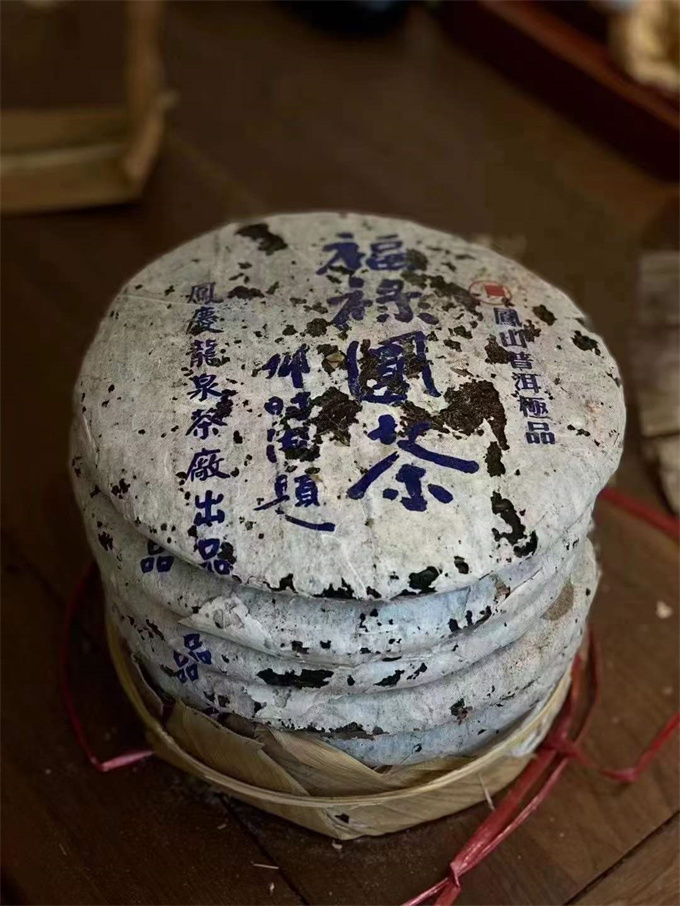 鳳山普洱極品
福祿圓茶
題
鳳慶龍泉茶廠出品
品
品